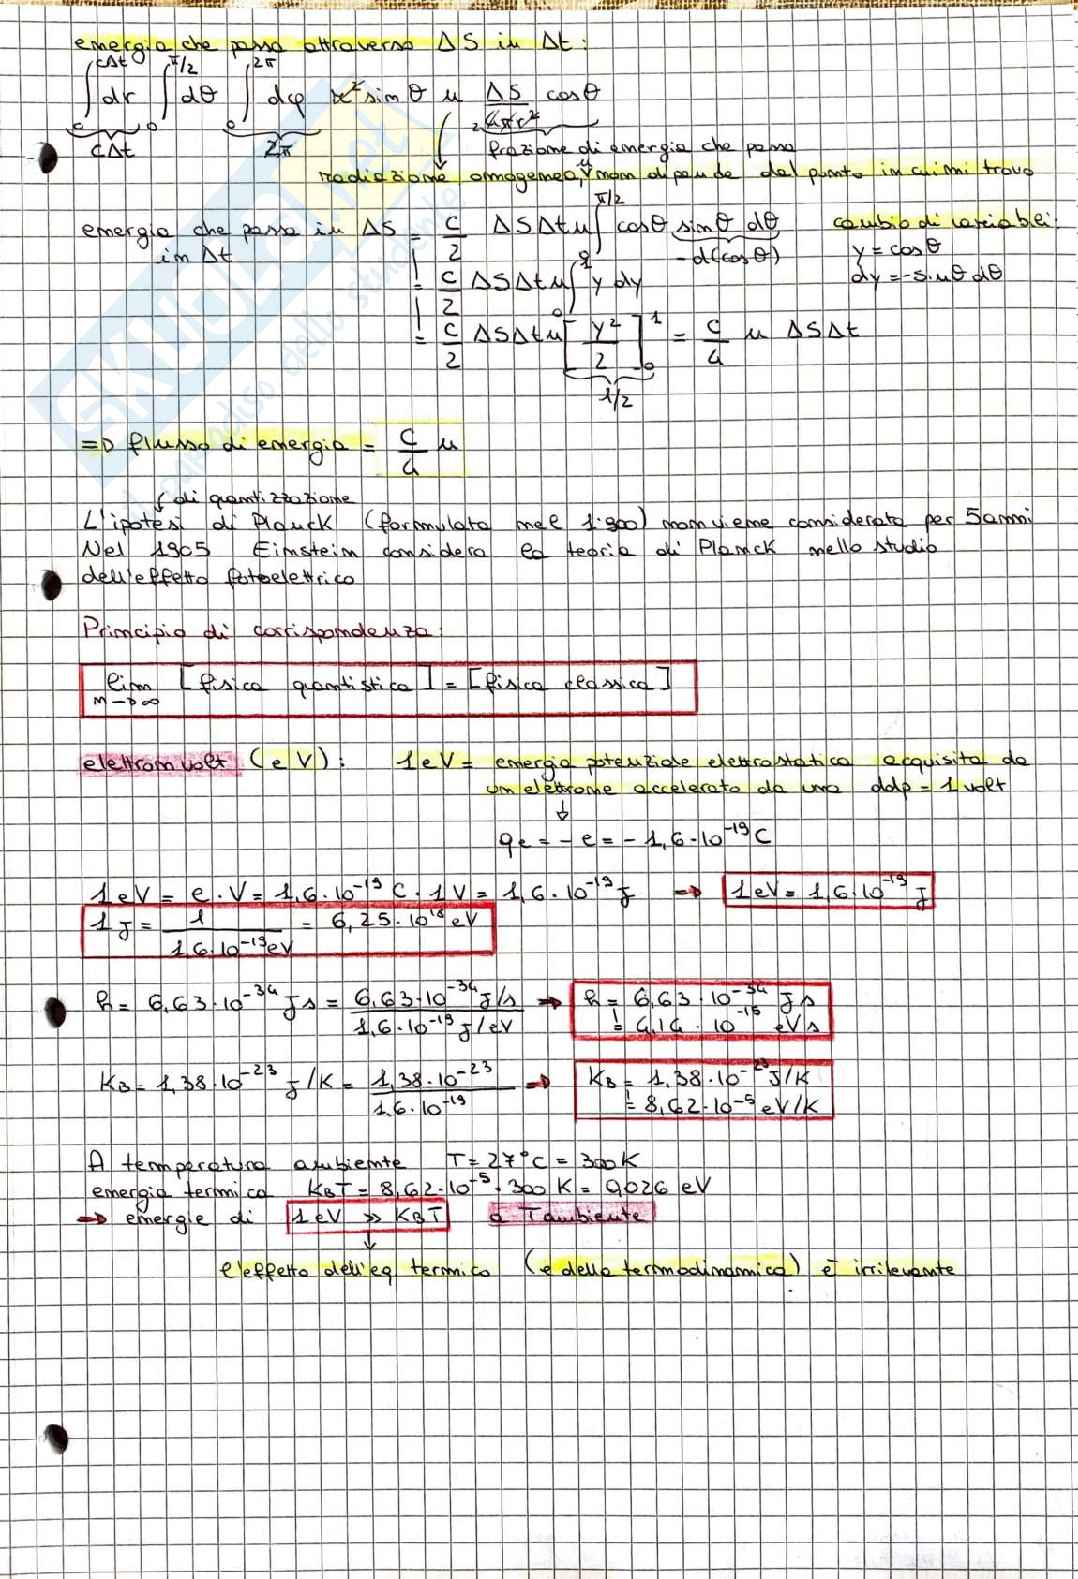 energia che passa attraverso ΔS in Δt:
∫₀^{cΔt} dr ∫₀^{π/2} dθ ∫₀^{2π} dφ r² sinθ u ΔS/4πr² cosθ
cΔt 2π 2 frazione di energia che passa
radiazione omogenea, u non dipende dal punto in cui mi trovo
energia che passa in ΔS = c/2 ΔSΔt u ∫₀^{π/2} cosθ sinθ dθ cambio di variabili:
in Δt -d(cosθ) y = cosθ
= c/2 ΔSΔt u ∫₀^1 y dy dy = -sinθ dθ
= c/2 ΔSΔt u [y²/2]₀^1 = c/4 u ΔSΔt
1/2
=> flusso di energia = c/4 u
di quantizzazione
L'ipotesi di Planck (formulata nel 1900) non viene considerata per 5 anni
Nel 1905 Einstein considera la teoria di Planck nello studio
dell'effetto fotoelettrico
Principio di corrispondenza:
lim n→∞ [fisica quantistica] = [fisica classica]
elettronvolt (eV): 1eV = energia potenziale elettrostatica acquisita da
un elettrone accelerato da una ddp = 1 volt
↓
qe = -e = -1,6·10^-19 C
1eV = e·V = 1,6·10^-19 C·1V = 1,6·10^-19 J → 1eV = 1,6·10^-19 J
1J = 1/1,6·10^-19 eV = 6,25·10^18 eV
h = 6,63·10^-34 Js = 6,63·10^-34 J/s / 1,6·10^-19 J/eV → h = 6,63·10^-34 Js
= 4,14·10^-15 eVs
KB = 1,38·10^-23 J/K = 1,38·10^-23 / 1,6·10^-19 → KB = 1,38·10^-23 J/K
= 8,62·10^-5 eV/K
A temperatura ambiente T = 27°C = 300K
energia termica KBT = 8,62·10^-5·300K = 0,026 eV
→ energie di 1eV >> KBT a Tambiente
↓
l'effetto dell'eq termico (e della termodinamica) è irrilevante
SKUOLA.net
il paradiso dello studente